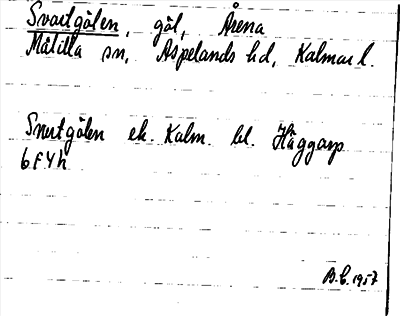 Svartgölen, göl, Årena
Målilla sn, Aspelands hd, Kalmar l.
Svartgölen ek. Kalm. bl. Häggarp
6F4h
B.E. 1957